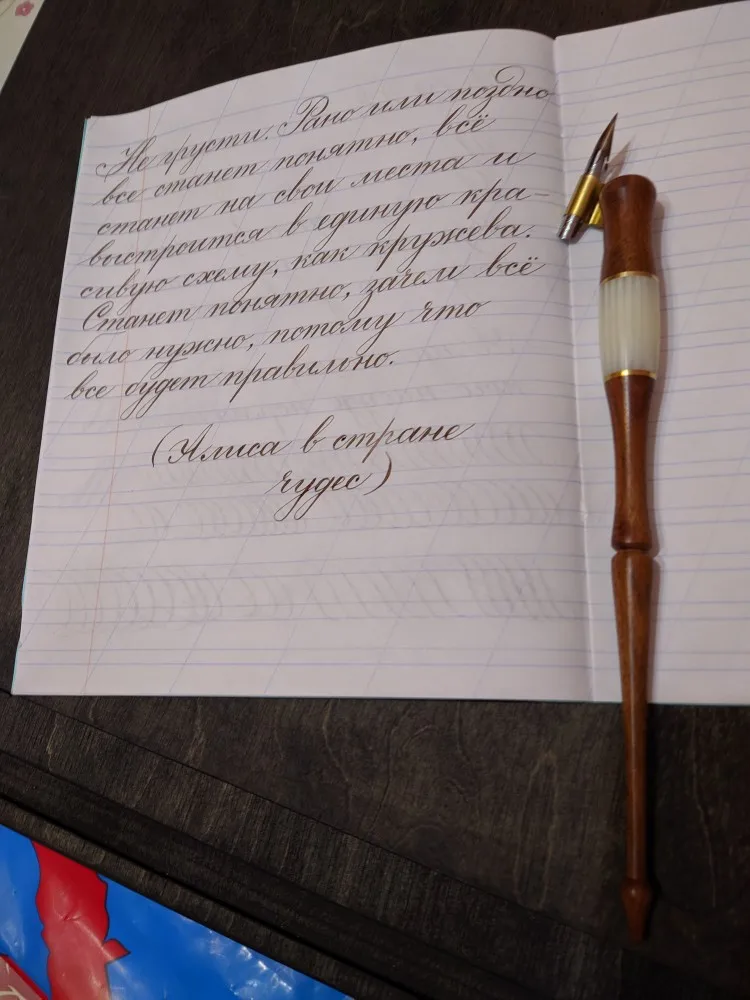 Не грусти. Рано или поздно
все станет понятно, всё
станет на свои места и
выстроится в единую кра-
сивую схему, как кружева.
Станет понятно, зачем всё
было нужно, потому что
все будет правильно.
(Алиса в стране
чудес)